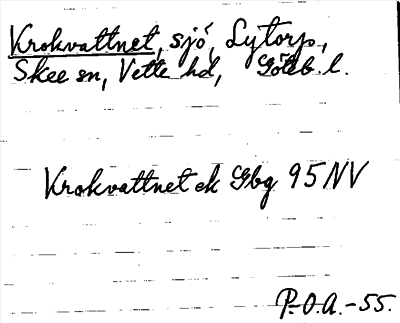 Krokvattnet, sjö, Lytorp,
Skee sn, Vette hd, Göteb. l.
Krokvattnet ek Gbg 95 NV
P.O.A.-55.